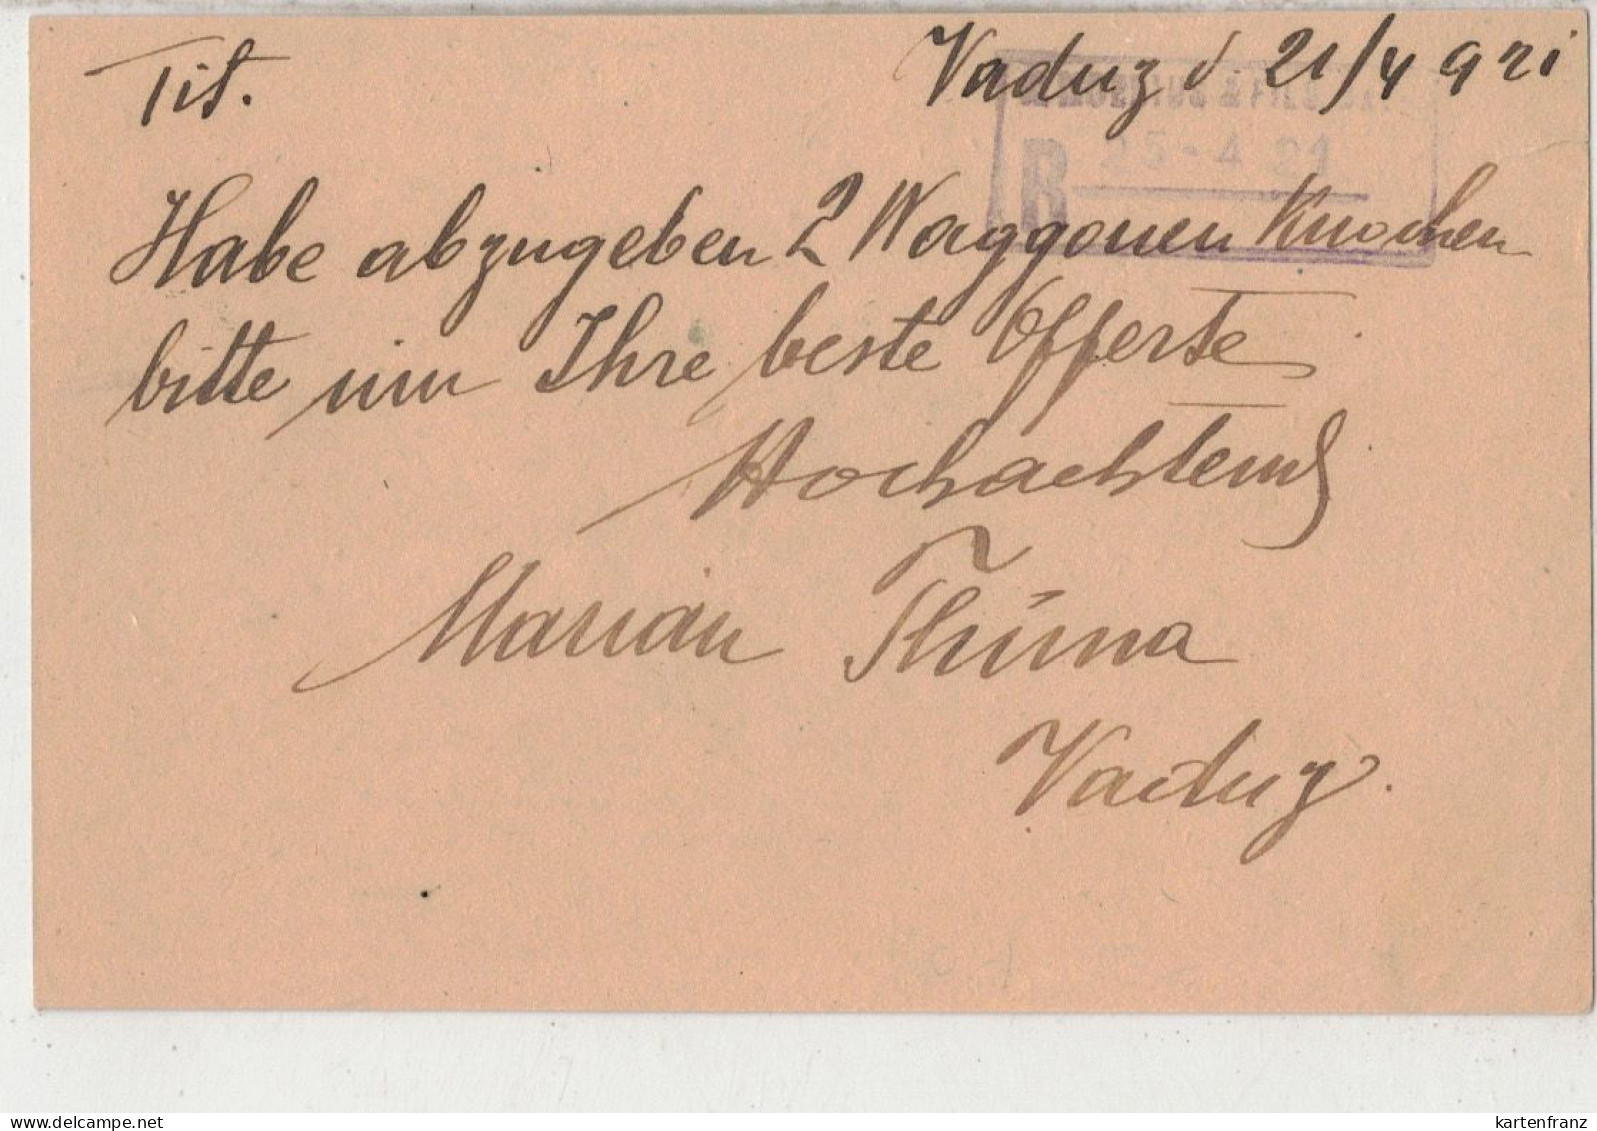 Tit.
Vaduz d. 21/4 921
R 25-4 21
Habe abzugeben 2 Waggonen Knochen
bitte um Ihre beste Offerte
Hochachtend
Marian Thüma
Vaduz.
kartenfranz
delcampe.net